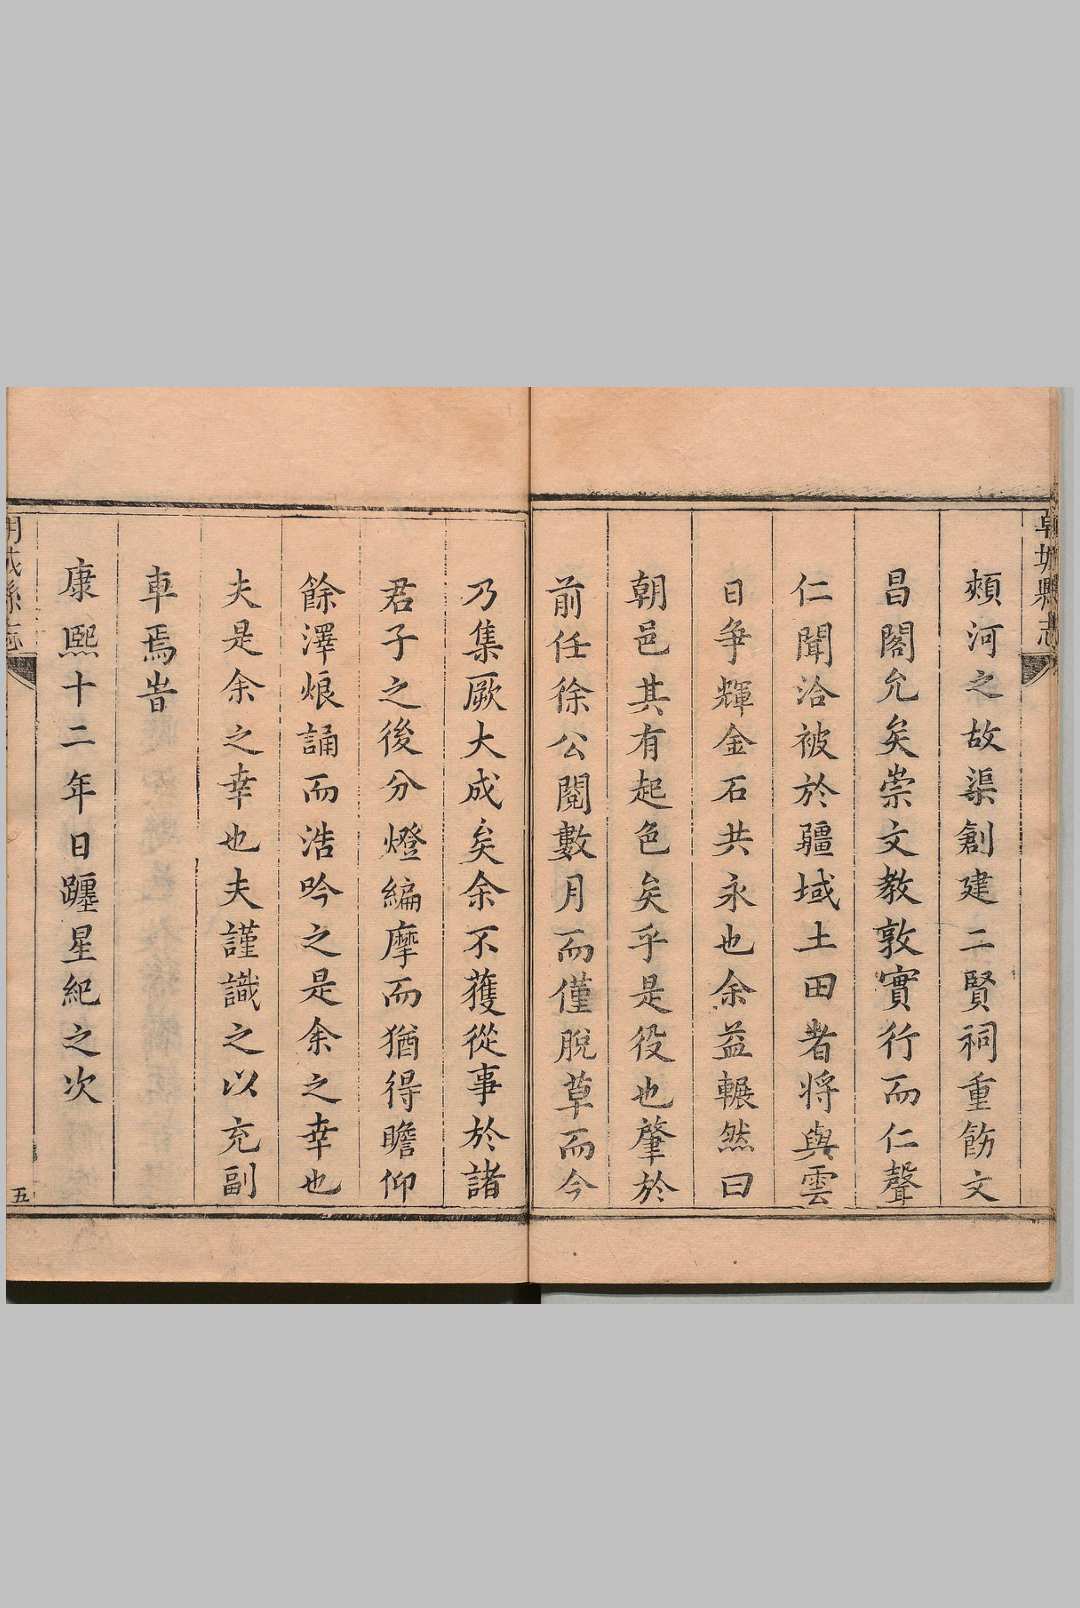 朝城縣志
頰河之故渠創建二賢祠重飭文
昌閣允矣崇文教敦實行而仁聲
仁聞洽被於疆域土田者將與雲
日爭輝金石共永也余益囅然曰
朝邑其有起色矣乎是役也肇於
前任徐公閱數月而僅脫草而今
乃集厥大成矣余不獲從事於諸
君子之後分燈編摩而猶得瞻仰
餘澤烺誦而浩吟之是余之幸也
夫是余之幸也夫謹識之以充副
車焉旹
康熙十二年日躔星紀之次
朝城縣志
五